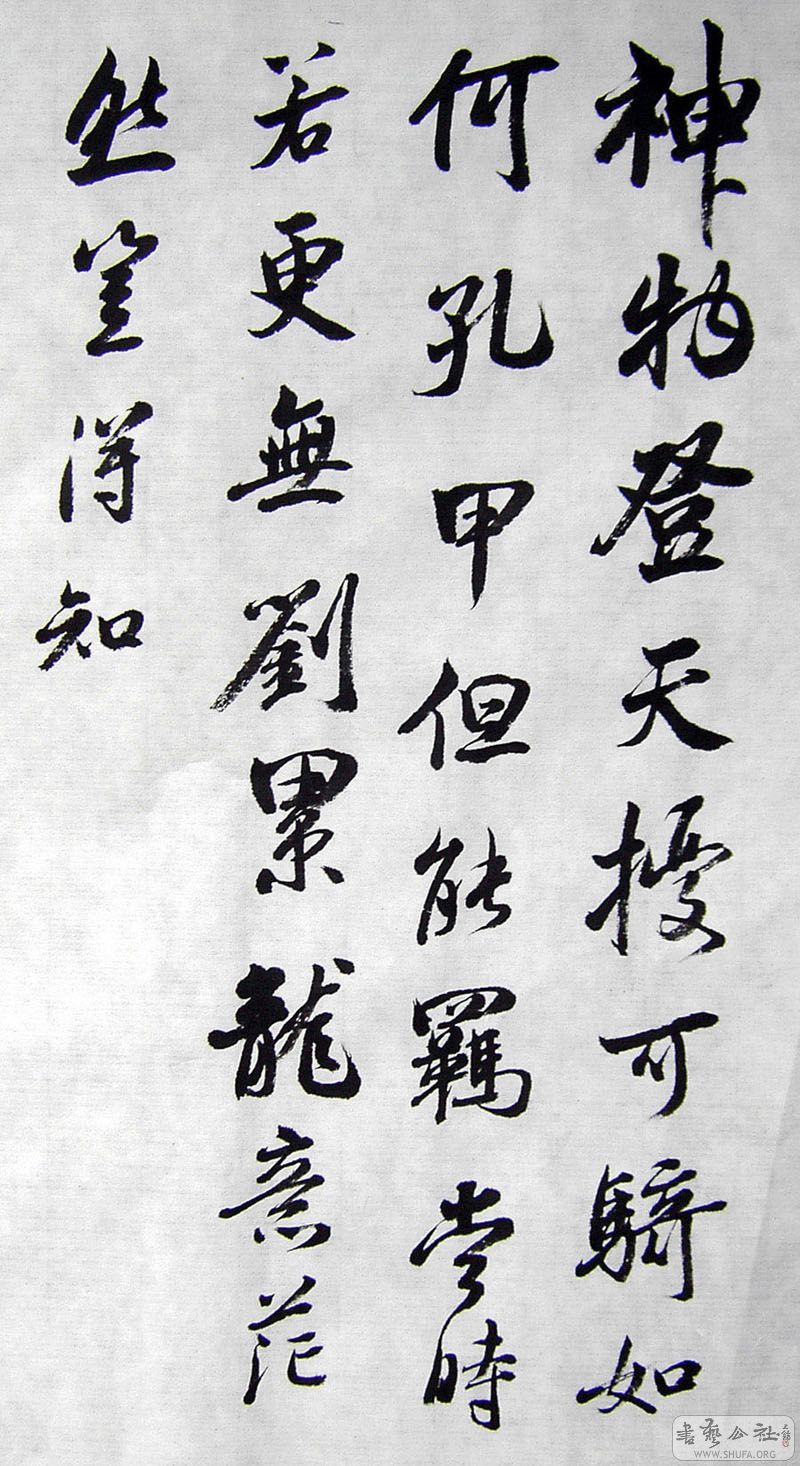 神物登天擾可騎如
何孔甲但能羈當時
若更無劉累龍意茫
然豈得知
書藝公社
WWW.SHUFA.ORG